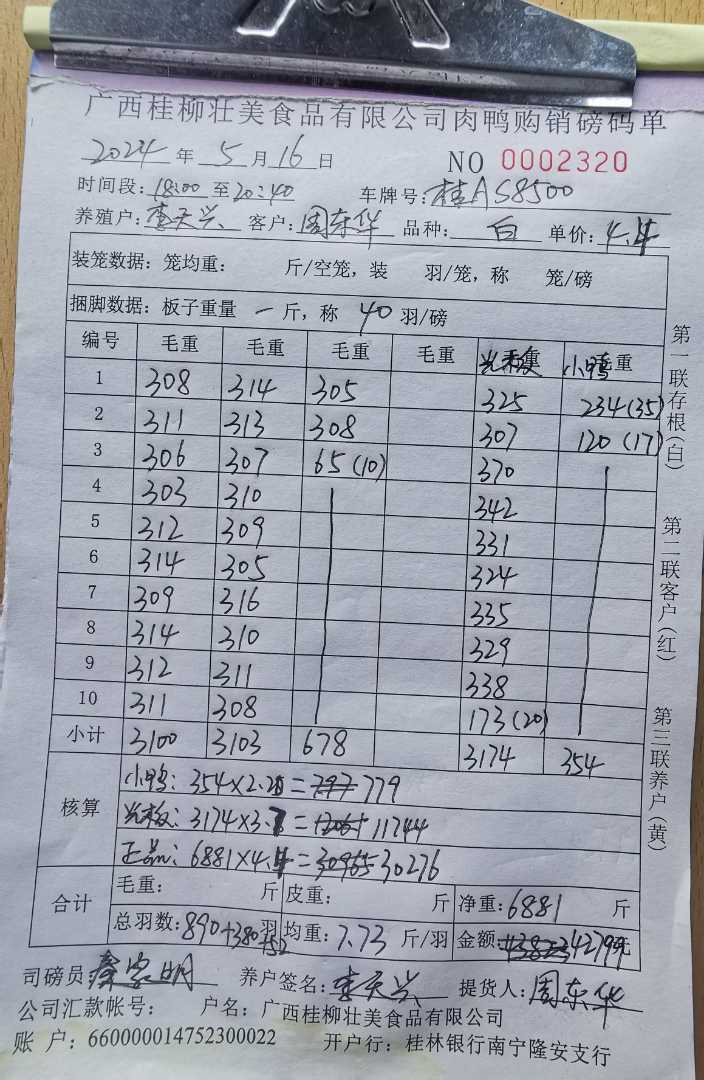 广西桂柳壮美食品有限公司肉鸭购销磅码单
2024 年 5 月 16 日 NO 0002320
时间段: 18:00 至 20:40 车牌号: 桂AS8500
养殖户: 李天兴 客户: 周东华 品种: 白 单价: 4.4
装笼数据: 笼均重: 斤/空笼, 装 羽/笼, 称 笼/磅
捆脚数据: 板子重量 一 斤, 称 40 羽/磅
编号 毛重 毛重 毛重 毛重 光板 小鸭 毛重
1 308 314 305 325 234(35)
2 311 313 308 307 120(17)
3 306 307 65(10) 370
4 303 310 342
5 312 309 331
6 314 305 324
7 309 316 335
8 314 310 329
9 312 311 338
10 311 308 173(20)
小计 3100 3103 678 3174 354
核算
小鸭: 354×2.2 = 797 779
光板: 3174×3.7 = 11744
正品: 6881×4.4 = 30965 30276
合计
毛重: 斤 皮重: 斤 净重: 6881 斤
总羽数: 890+380+52 羽 均重: 7.73 斤/羽 金额: 42799 元
司磅员 秦家明 养户签名: 李天兴 提货人: 周东华
公司汇款帐号: 户名: 广西桂柳壮美食品有限公司
账 户: 660000014752300022 开户行: 桂林银行南宁隆安支行
第一联存根(白)
第二联客户(红)
第三联养户(黄)